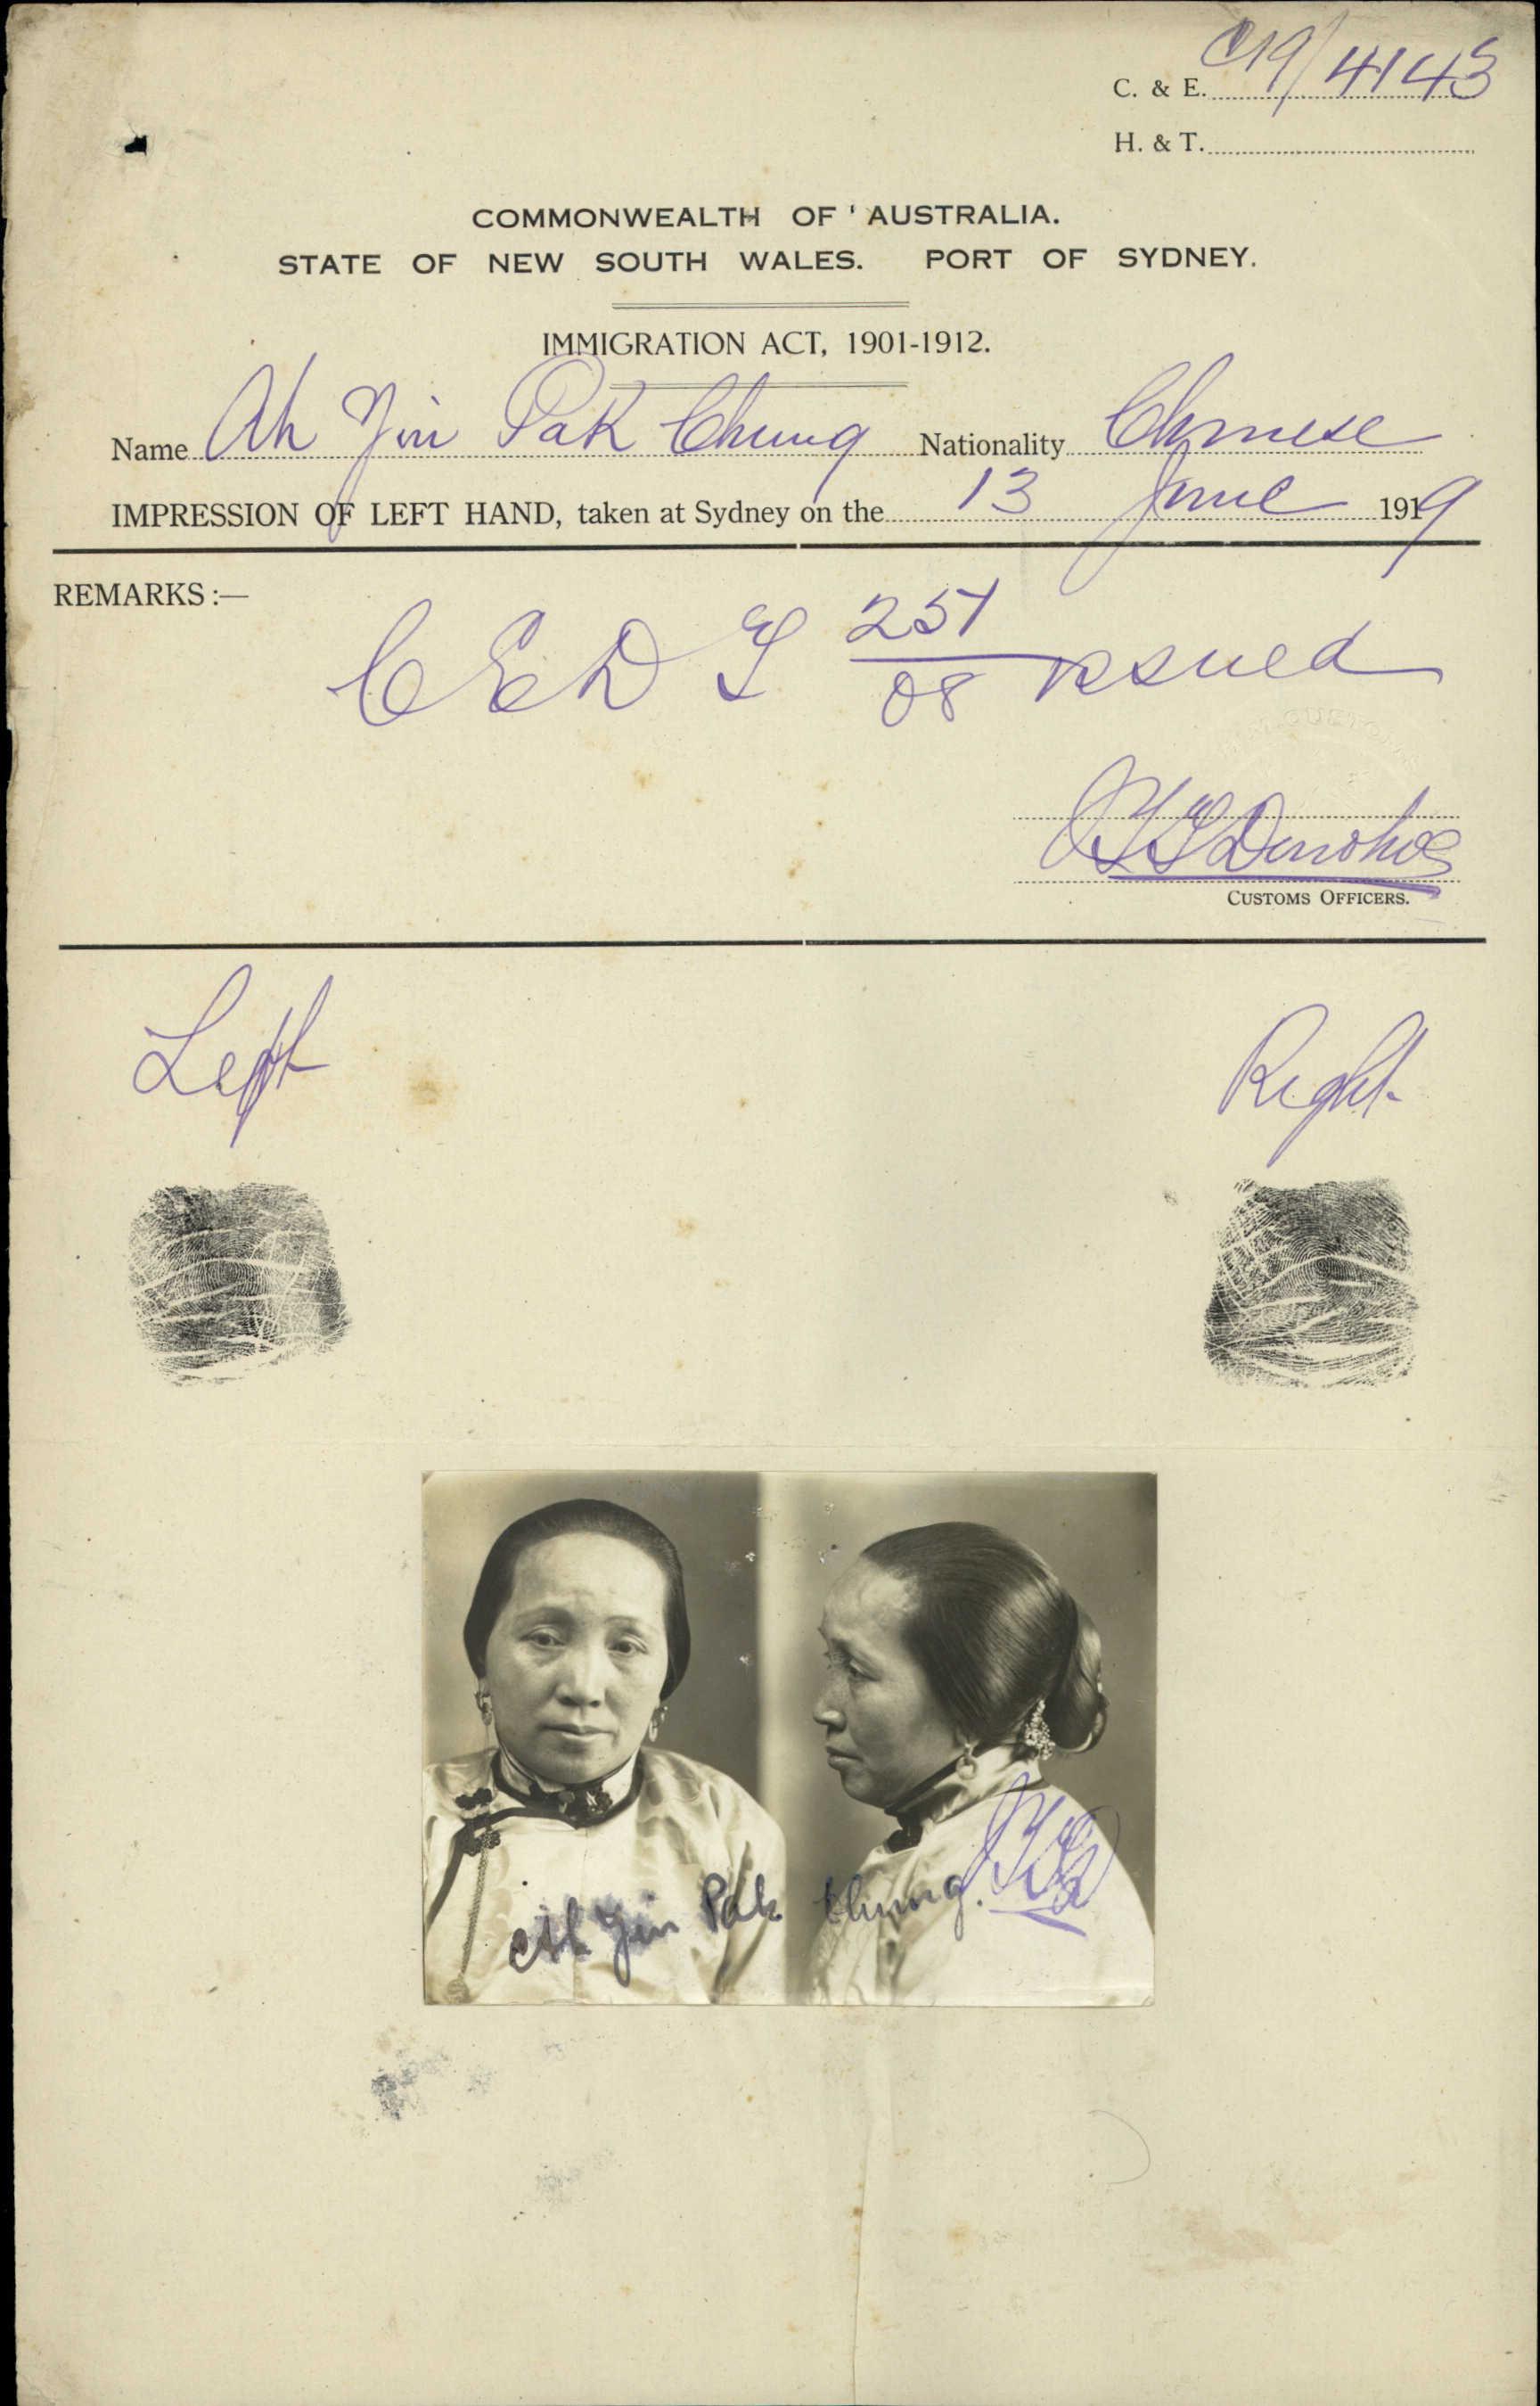 C. & E. C19/4143
H. & T.
COMMONWEALTH OF AUSTRALIA.
STATE OF NEW SOUTH WALES. PORT OF SYDNEY.
IMMIGRATION ACT, 1901-1912.
Name Ah Yin Pak Chung Nationality Chinese
IMPRESSION OF LEFT HAND, taken at Sydney on the 13 June 1919
REMARKS :—
C E D T 251/08 issued
Donohoe
CUSTOMS OFFICERS.
Left Right
Ah Yin Pak Chung.